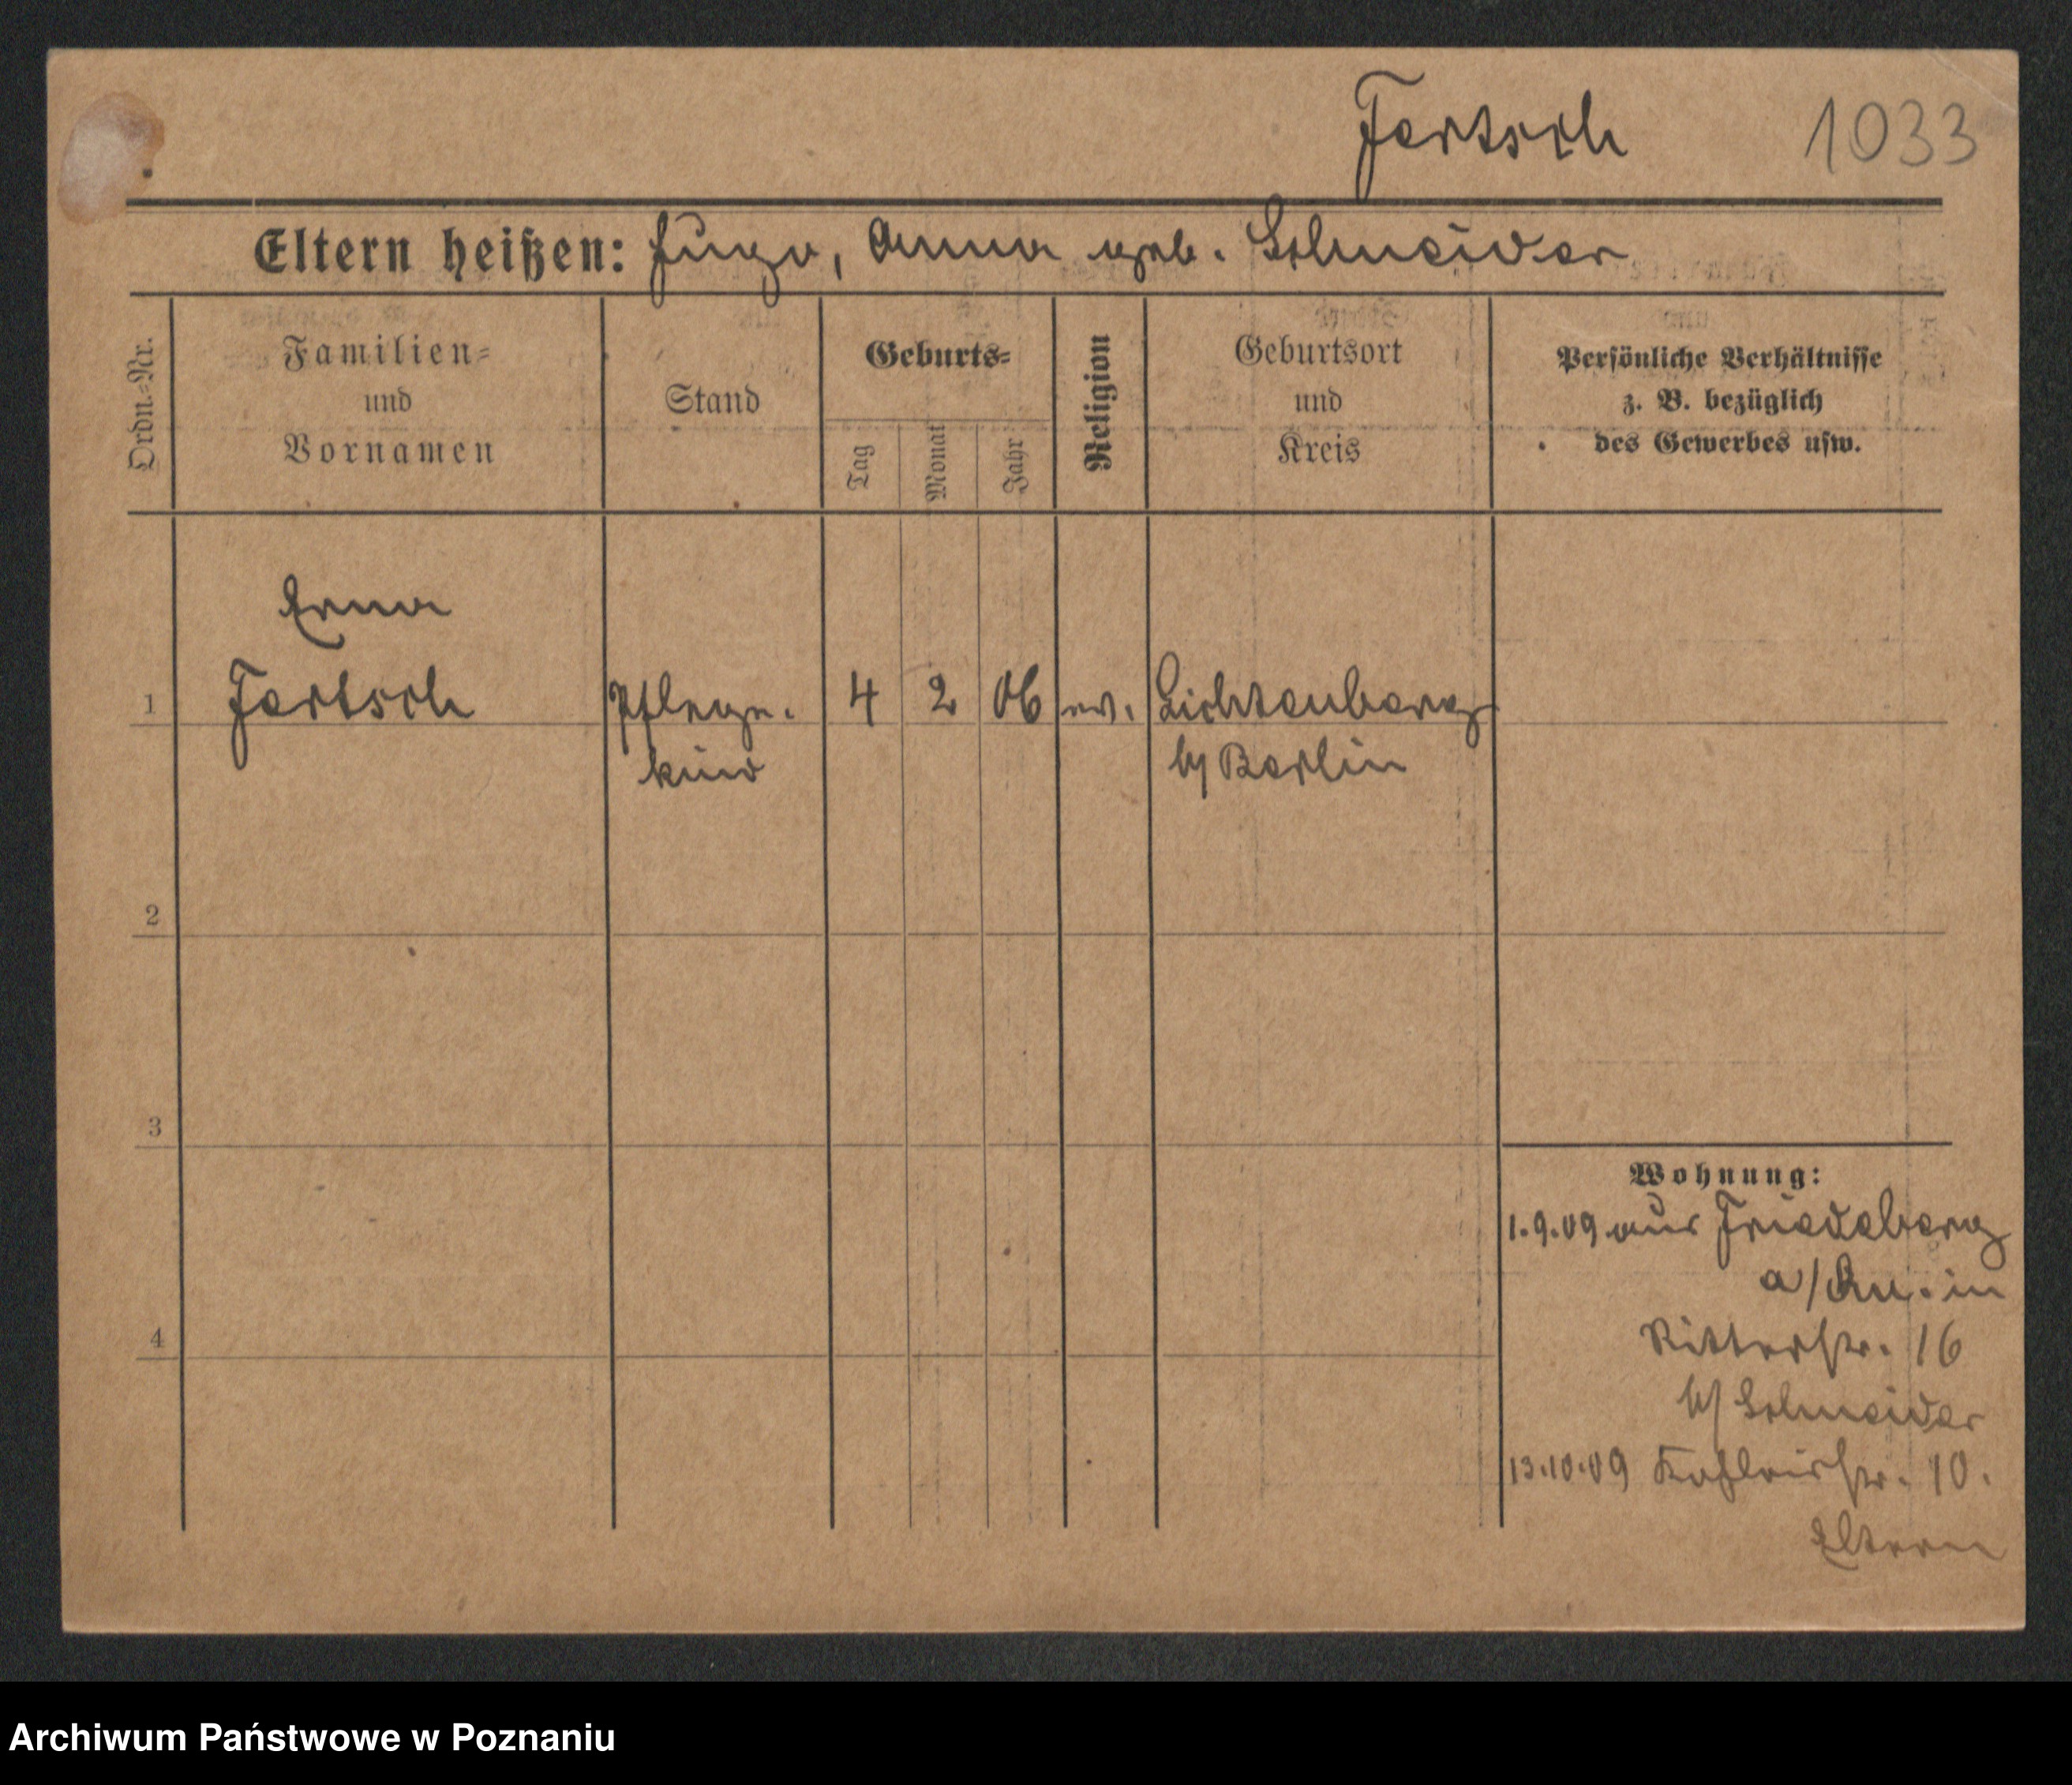 Fertsch 1033
Eltern heißen: Hugo, Anna geb. Schneider
Ordn.-Nr.
Familien-
und
Vornamen
Stand
Geburts-
Tag
Monat
Jahr
Religion
Geburtsort
und
Kreis
Persönliche Verhältnisse
z. B. bezüglich
des Gewerbes usw.
Erna
1 Fertsch Pflege- 4 2 06 ev. Lichtenberg
kind b/ Berlin
2
3
4
Wohnung:
1.9.09 aus Friedeberg
a/Qu. in
Ritterstr. 16
b/ Schneider
13.10.09 10.
Eltern
Archiwum Państwowe w Poznaniu